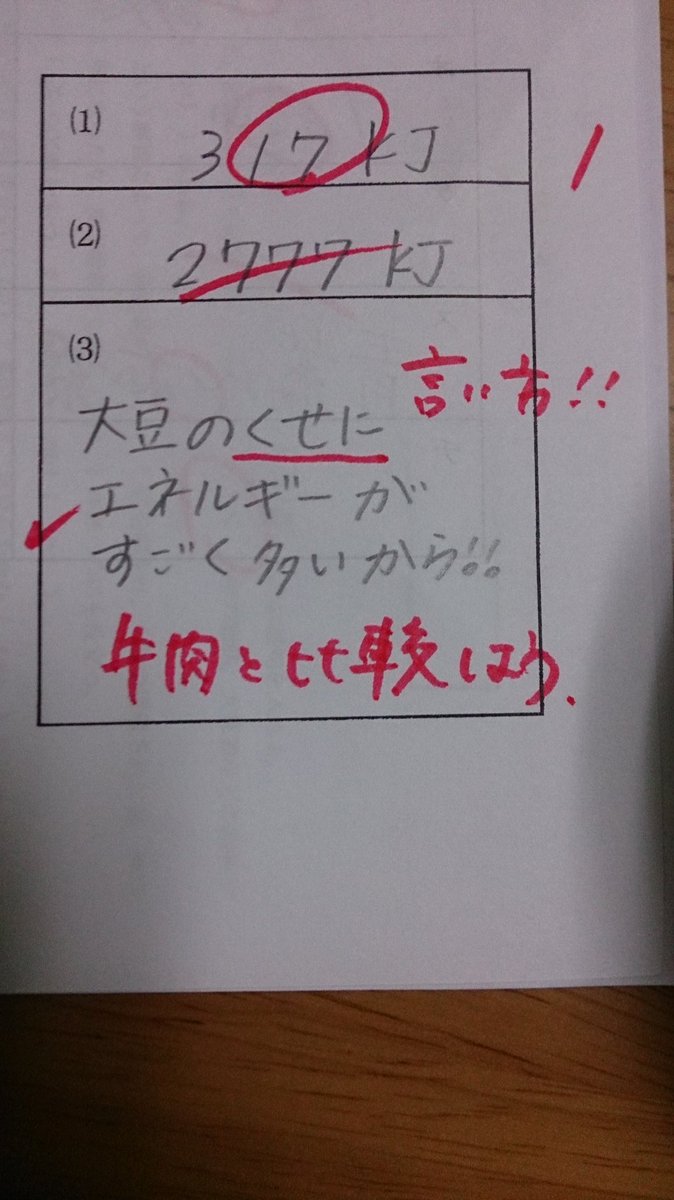 (1)
317 kJ
1
(2)
2777 kJ
(3)
言い方!!
大豆のくせに
エネルギーが
すごく多いから!!
牛肉と比較しよう.